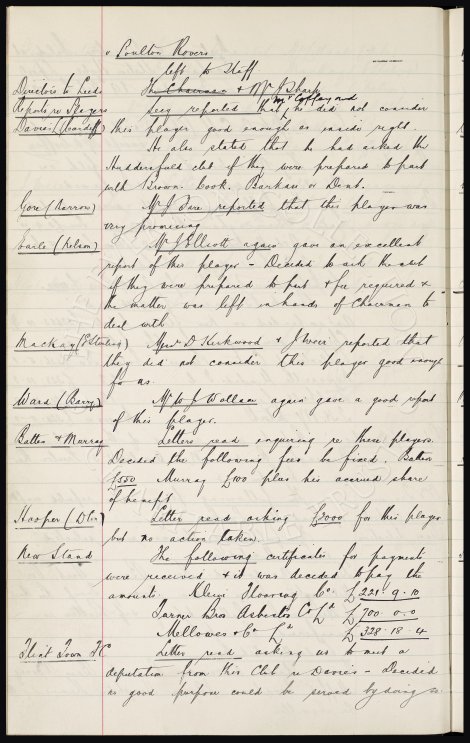 v Poulton Rovers
left to Staff
Directors to Leeds The Chairman & Mr J Sharp
Reports re Players being reported that Mr Coffey and he did not consider
Davies (Cardiff) this player good enough as inside right.
He also stated that he had asked the
Huddersfield club if they were prepared to part
with Brown. Cook. Barkas or Dent.
Gore (Barrow) Mr J Dare reported that this player was
very promising
Earle (Nelson) Mr J Elliott again gave an excellent
report of this player - Decided to ask the club
if they were prepared to part & fee required &
the matter was left in hands of Chairman to
deal with
Mackay (E Stirling) Messrs D Kirkwood & J Weir reported that
they did not consider this player good enough
for us.
Ward (Barry) Mr W J Wallace again gave a good report
of this player.
Batten & Murray Letters read enquiring re these players.
Decided the following fees be fixed. Batten
£550 Murray £100 plus his accrued share
of benefit
Hooper (Dton) Letter read asking £2000 for this player
but no action taken.
New Stand The following certificates for payment
were received & it was decided to pay the
amounts. Kleine Flooring Co. £221.9.10
Turner Bros Asbestos Co Ld £700.0.0
Mellowes & Co Ld £328.18.4
Flint Town FC Letter read asking us to meet a
deputation from this Club re Davies - Decided
no good purpose could be served by doing so